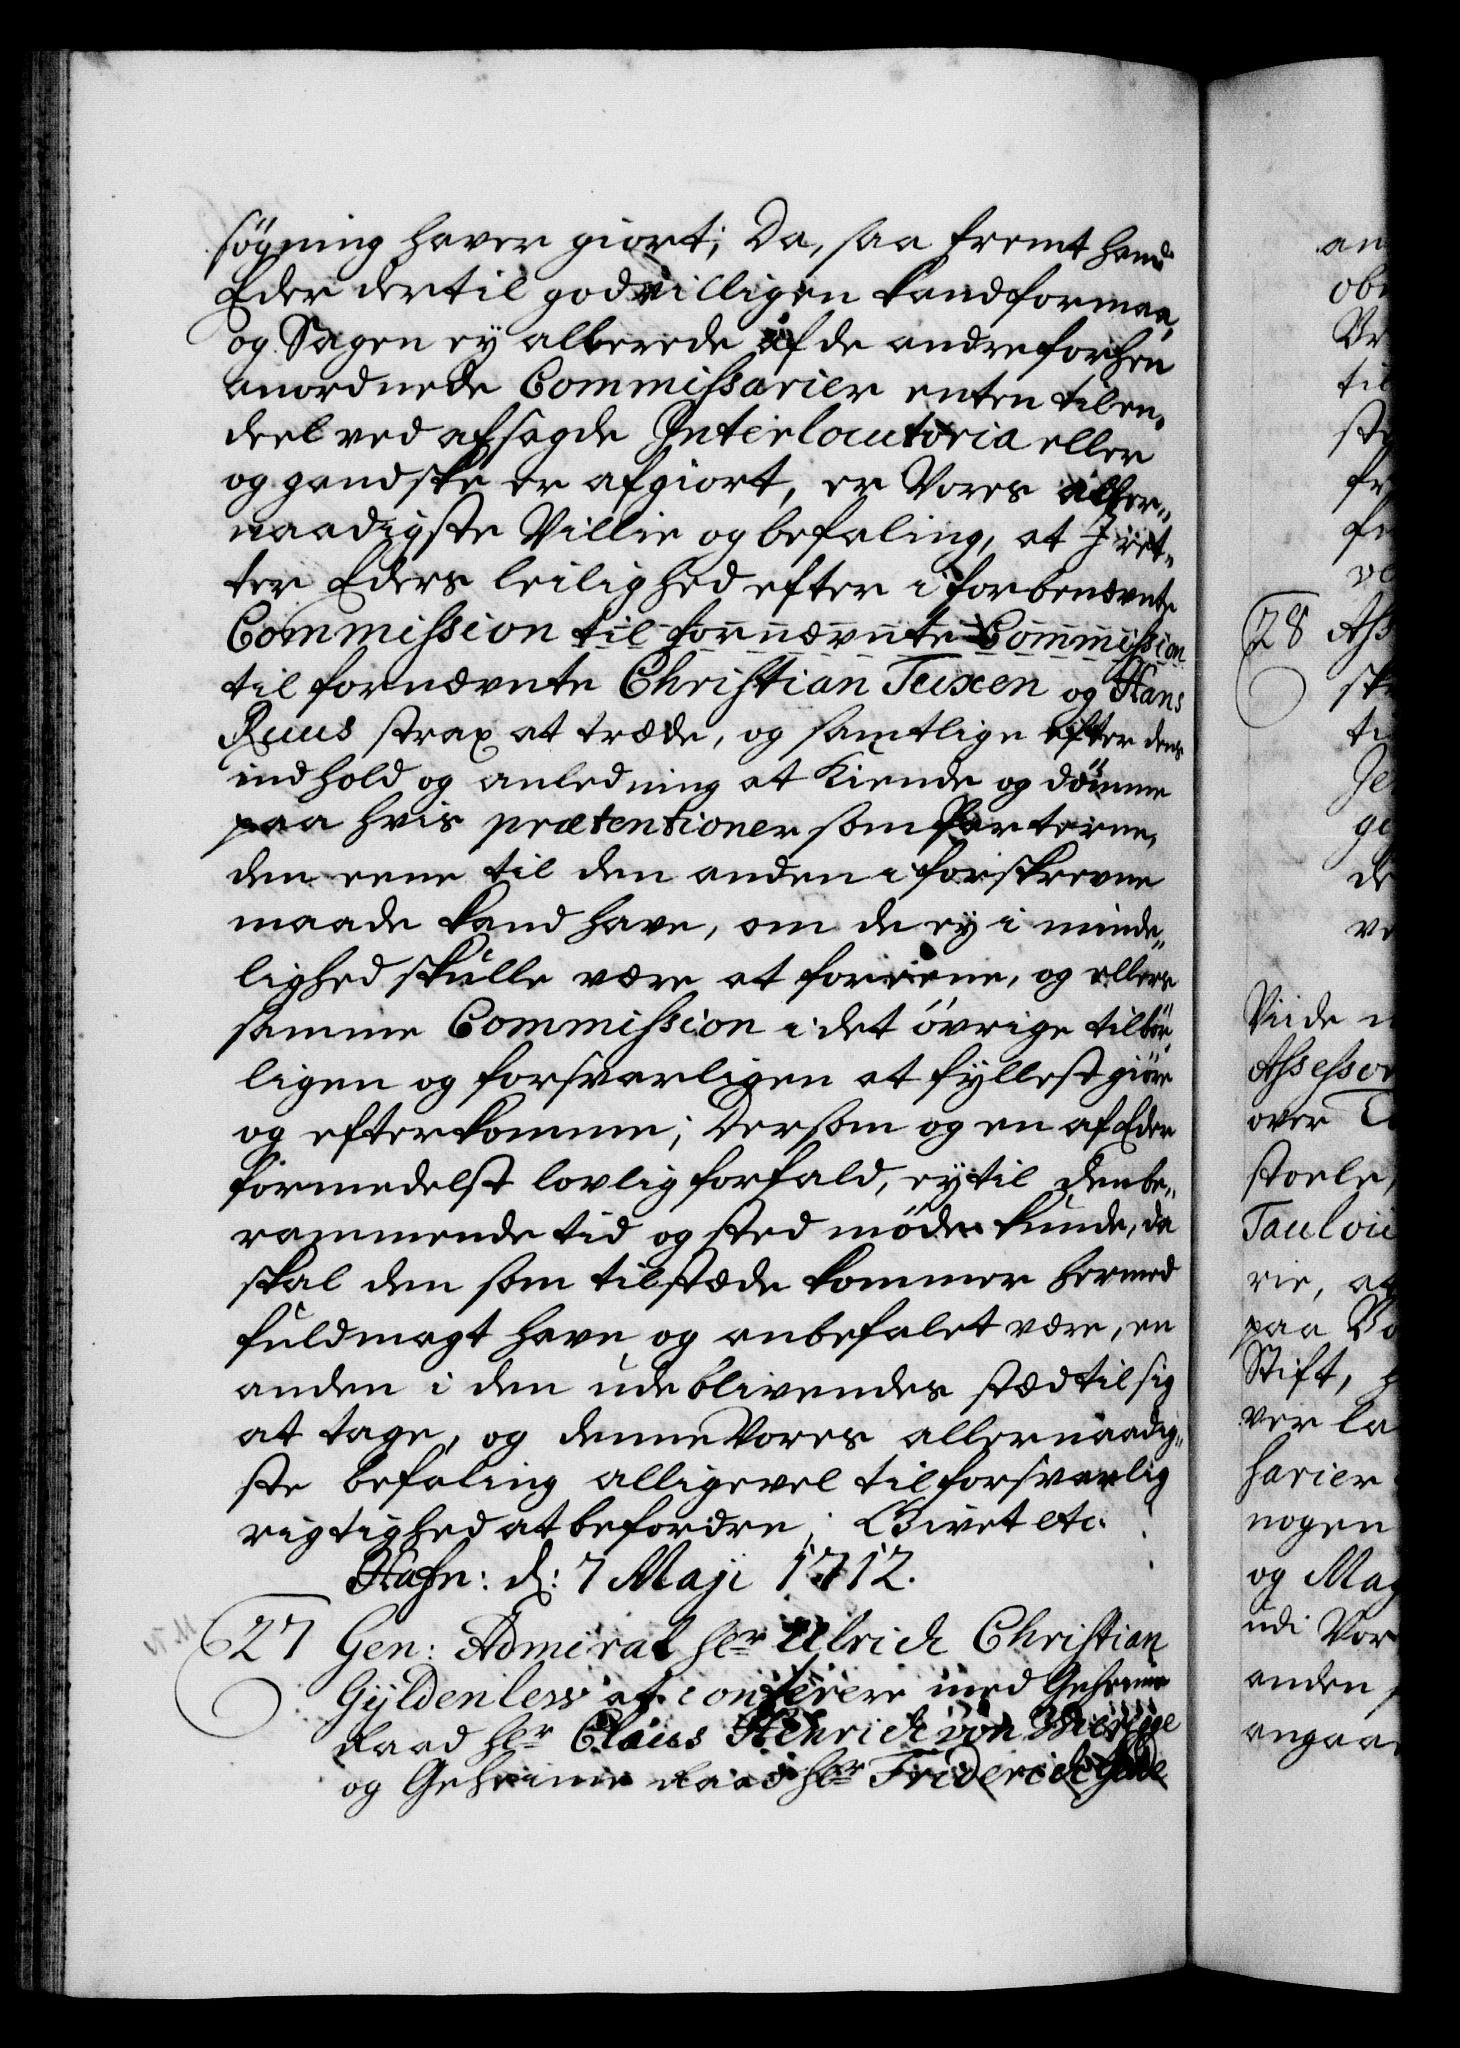 søgning haver giort; Da, saa fremt hand
Eder dertil godvilligen kand formaa,
og Sagen ey allerede af de andre forhen
anordnede Commissarier enten til en„
deel ved afsagde Interlocutoria eller
og gandske er afgiort, er Vores aller„
naadigste Villie og befaling, at I ret„
ter Eders leilighed efter i forbenævnte
Commission til fornævnte Commission
til fornævnte Christian Tuxen og Hans
Ruus strax at træde, og samtlige efter dens
indhold og anledning at Kiende og dömme
paa hvis prætentioner som Parterne,
den eene til den anden i forskrevne
maade kand have, om de ey i minde„
lighed skulle være at foreene, og ellers
samme Commission i det övrige tilbör„
ligen og forsvarligen at fyllestgiöre
og efterkomme; Dersom og en af Eder
formedelst lovlig forfald, ey til den be„
rammende tid og sted møde kunde, da
skal den som tilstæde kommer hermed
fuldmagt have og anbefalet være, en
anden i den udeblivendes stæd til sig
at tage, og denne Vores allernaadig„
ste befaling alligevel til forsvarlig
rigtighed at befordre; Givet etc.
Hafn: d: 7 Maji 1712.
27 Gen: Admiral Hr Ulrich Christian
Gyldenlew at conferere med Geheime
Raad Hr Claus Henrich von
og Geheime Raad Hr Friderich
an
til
28 Ass
Viide
Assessor
over
stoele,
Taulov
rie, at
paa Vo
Stift,
ver la
sarier
nogen
og May
udi Vor
anden
angaa